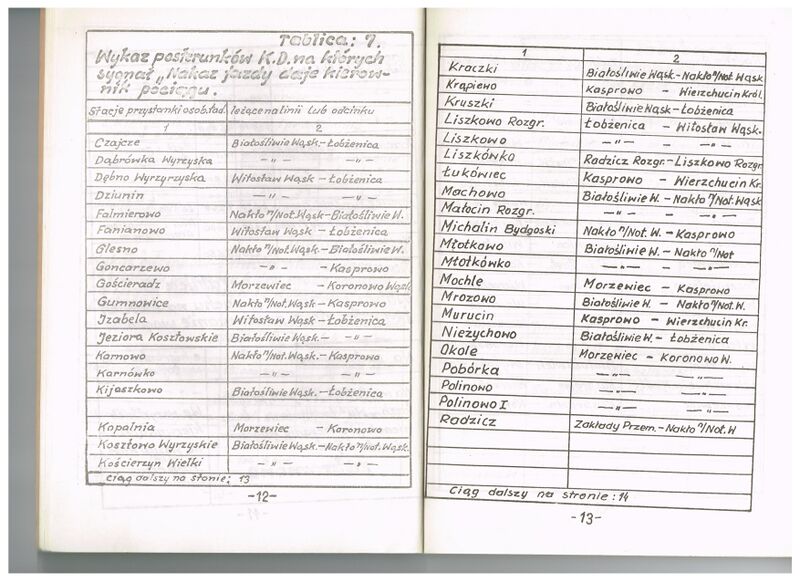 Tablica: 7.
Wykaz posterunków K.D. na których
sygnał „Nakaz jazdy daje kierow-
nik pociągu.
Stacje przystanki osob. ład. leżące na linii lub odcinku
1 2
Czajcze Białośliwie Wąsk.-Łobżenica
Dąbrówka Wyrzyska —"— —"—
Dębno Wyrzyrzyska Witosław Wąsk - Łobżenica
Dziunin —"— —"—
Falmierowo Nakło n/Not. Wąsk-Białośliwie W.
Fanianowo Witosław Wąsk - Łobżenica
Glesno Nakło n/Not. Wąsk - Białośliwie W.
Goncarzewo —"— - Kasprowo
Gościeradz Morzewiec - Koronowo Wąsk
Gumnowice Nakło n/Not. Wąsk - Kasprowo
Izabela Witosław Wąsk - Łobżenica
Jeziora Kosztowskie Białośliwie Wąsk. - —"—
Karnowo Nakło n/Not. Wąsk - Kasprowo
Karnówko —"— —"—
Kijaszkowo Białośliwie Wąsk. - Łobżenica
Kopalnia Morzewiec - Koronowo
Kosztowo Wyrzyskie Białośliwie Wąsk. - Nakło n/Not. Wąsk.
Kościerzyn Wielki —"— —"—
Ciąg dalszy na stonie; 13
-12-
1 2
Kraczki Białośliwie Wąsk-Nakło n/Not. Wąsk
Krąpiewo Kasprowo - Wierzchucin Król.
Kruszki Białośliwie Wąsk - Łobżenica
Liszkowo Rozgr. Łobżenica - Witosław Wąsk.
Liszkowo —"— —"—
Liszkówko Radzicz Rozgr. - Liszkowo Rozgr.
Łukówiec Kasprowo - Wierzchucin Kr.
Machowo Białośliwie W. - Nakło n/Not. Wąsk
Matocin Rozgr. —"— —"—
Michalin Bydgoski Nakło n/Not. W. - Kasprowo
Młotkowo Białośliwie W. - Nakło n/Not
Młotkówko —"— —"—
Mochle Morzewiec - Kasprowo
Mrozowo Białośliwie W. - Nakło n/Not. W.
Murucin Kasprowo - Wierzchucin Kr.
Nieżychowo Białośliwie W. - Łobżenica
Okole Morzewiec - Koronowo W.
Pobórka —"— —"—
Polinowo —"— —"—
Polinowo I —"— —"—
Radzicz Zakłady Przem. - Nakło n/Not. W
Ciąg dalszy na stronie: 14
-13-